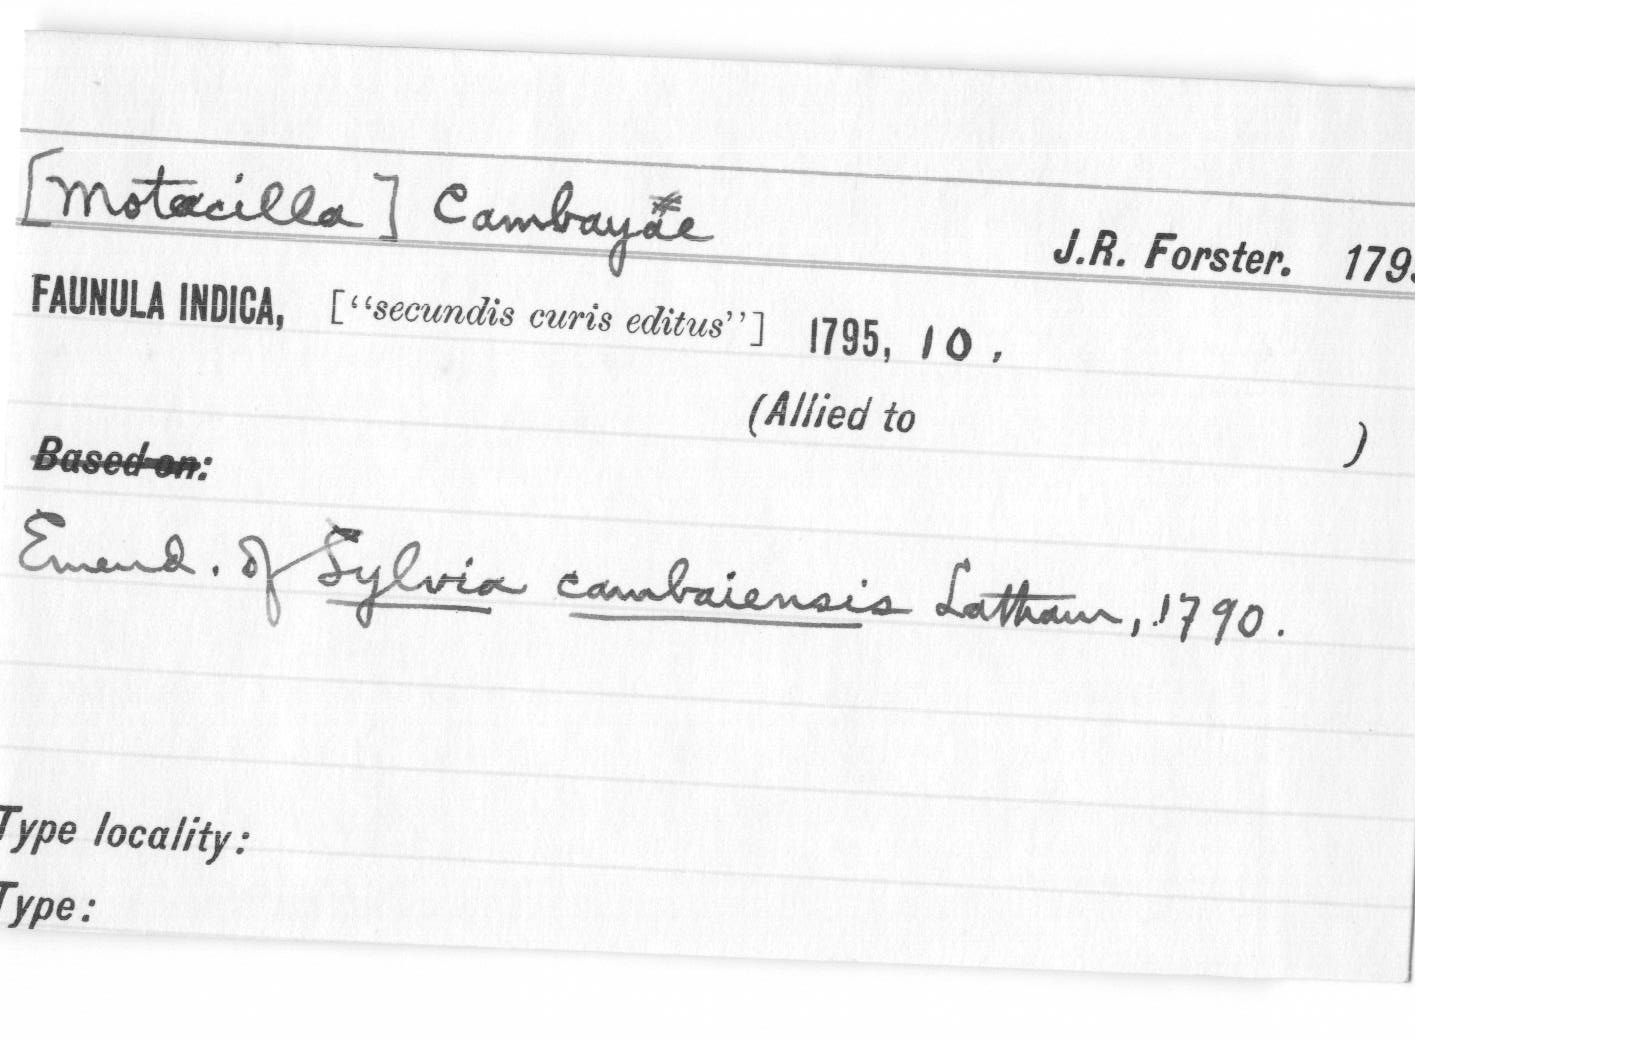 [Motacilla] Cambayae J.R. Forster. 179
FAUNULA INDICA, ["secundis curis editus"] 1795, 10.
(Allied to )
Based on:
Emend. of Sylvia cambaiensis Latham, 1790.
Type locality:
Type: